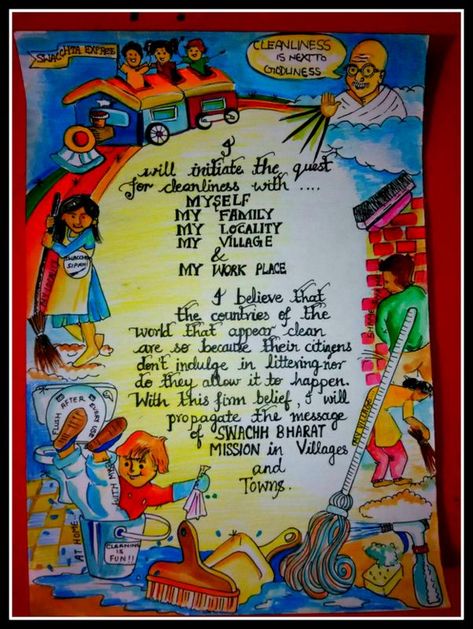 SWACHHTA EXPRESS
CLEANLINESS
IS NEXT TO
GODLINESS
I
will initiate the quest
for cleanliness with ....
MYSELF
MY FAMILY
MY LOCALITY
MY VILLAGE
&
MY WORK PLACE
I believe that
the countries of the
world that appear clean
are so because their citizens
don't indulge in littering nor
do they allow it to happen.
With this firm belief, I will
propagate the message
of SWACHH BHARAT
MISSION in Villages
and
Towns.
SWACCHTA
SIPAHI
FLUSH AFTER EVERY USE
AT HOME
WITH
CLEANING
IS
FUN!!